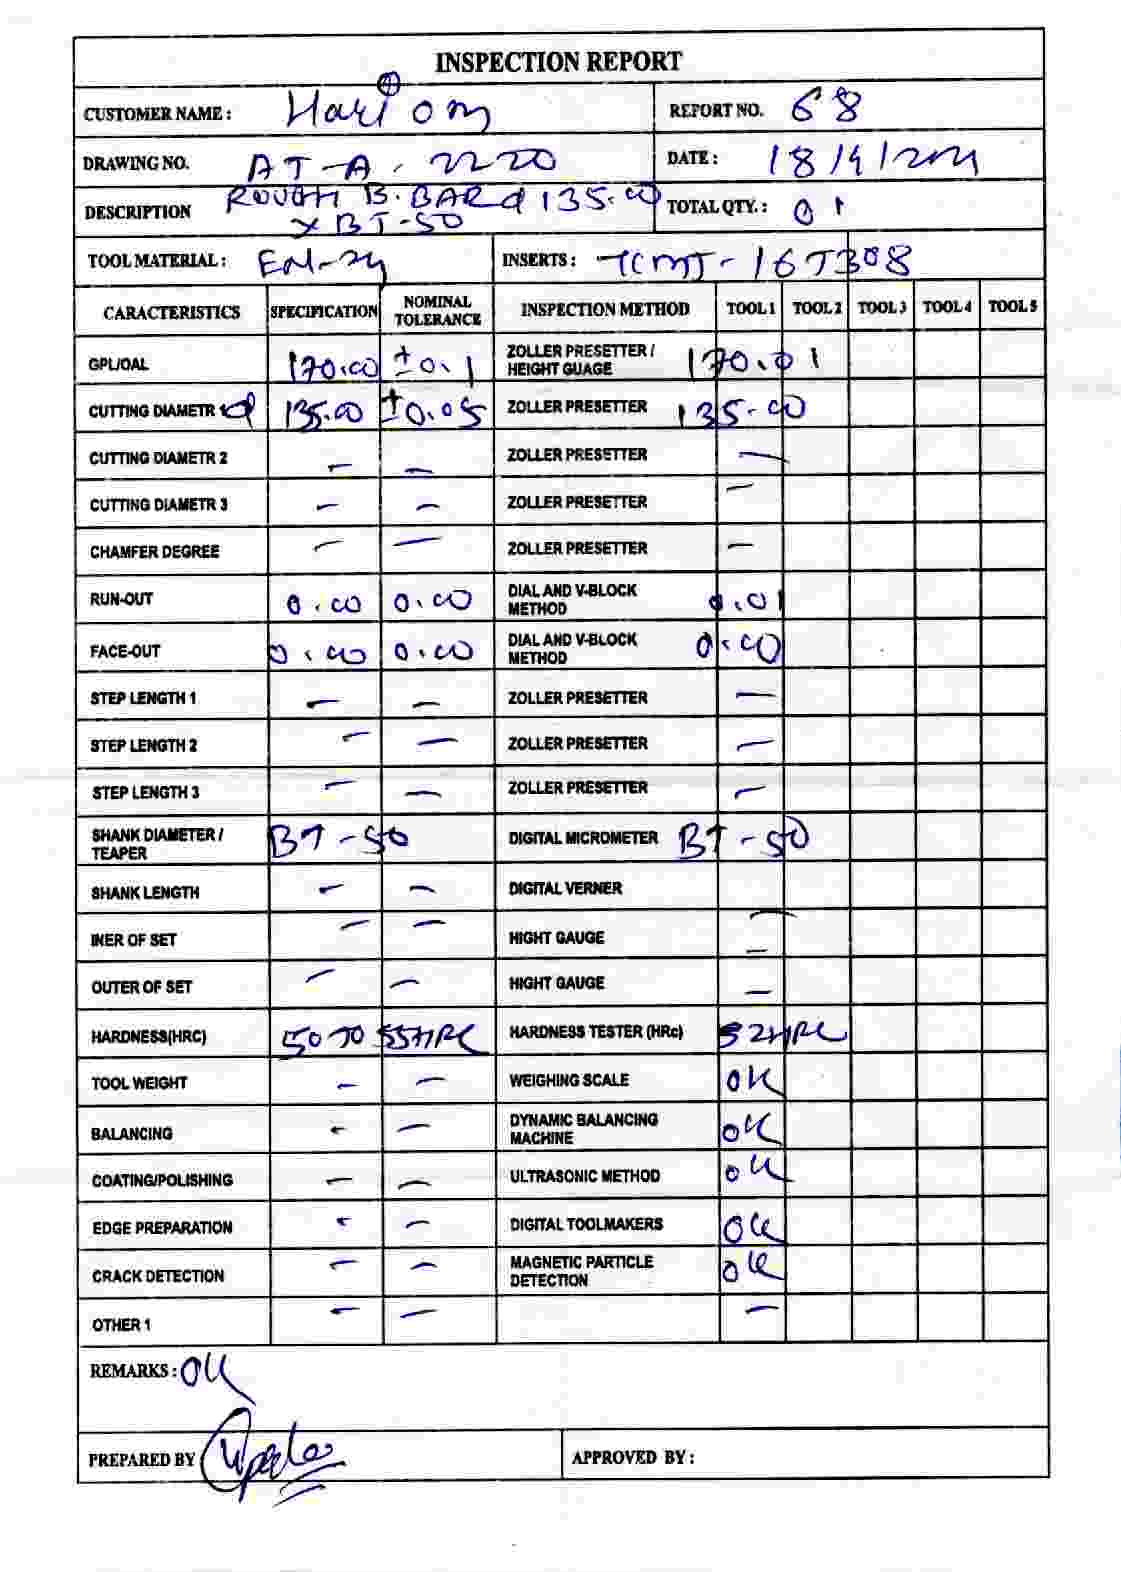 INSPECTION REPORT
CUSTOMER NAME : Hari om REPORT NO. 68
DRAWING NO. AT-A. 2220 DATE : 18/9/2021
DESCRIPTION ROUGH B. BAR d 135.00 TOTAL QTY. : 01
X BT-50
TOOL MATERIAL : EN-24 INSERTS : TCMT-16T308
CARACTERISTICS SPECIFICATION NOMINAL TOLERANCE INSPECTION METHOD TOOL 1 TOOL 2 TOOL 3 TOOL 4 TOOL 5
GPL/OAL 170.00 ±0.1 ZOLLER PRESETTER / HEIGHT GUAGE 170.01
CUTTING DIAMETR 1 d 135.00 ±0.05 ZOLLER PRESETTER 135.00
CUTTING DIAMETR 2 - - ZOLLER PRESETTER -
CUTTING DIAMETR 3 - - ZOLLER PRESETTER -
CHAMFER DEGREE - - ZOLLER PRESETTER -
RUN-OUT 0.00 0.00 DIAL AND V-BLOCK METHOD 0.01
FACE-OUT 0.00 0.00 DIAL AND V-BLOCK METHOD 0.00
STEP LENGTH 1 - - ZOLLER PRESETTER -
STEP LENGTH 2 - - ZOLLER PRESETTER -
STEP LENGTH 3 - - ZOLLER PRESETTER -
SHANK DIAMETER / TEAPER BT-50 DIGITAL MICROMETER BT-50
SHANK LENGTH - - DIGITAL VERNER
INER OF SET - - HIGHT GAUGE -
OUTER OF SET - - HIGHT GAUGE -
HARDNESS(HRC) 50 TO 55HRC HARDNESS TESTER (HRc) 52HRC
TOOL WEIGHT - - WEIGHING SCALE OK
BALANCING - - DYNAMIC BALANCING MACHINE OK
COATING/POLISHING - - ULTRASONIC METHOD OK
EDGE PREPARATION - - DIGITAL TOOLMAKERS OK
CRACK DETECTION - - MAGNETIC PARTICLE DETECTION OK
OTHER 1 - - -
REMARKS : OK
PREPARED BY APPROVED BY :